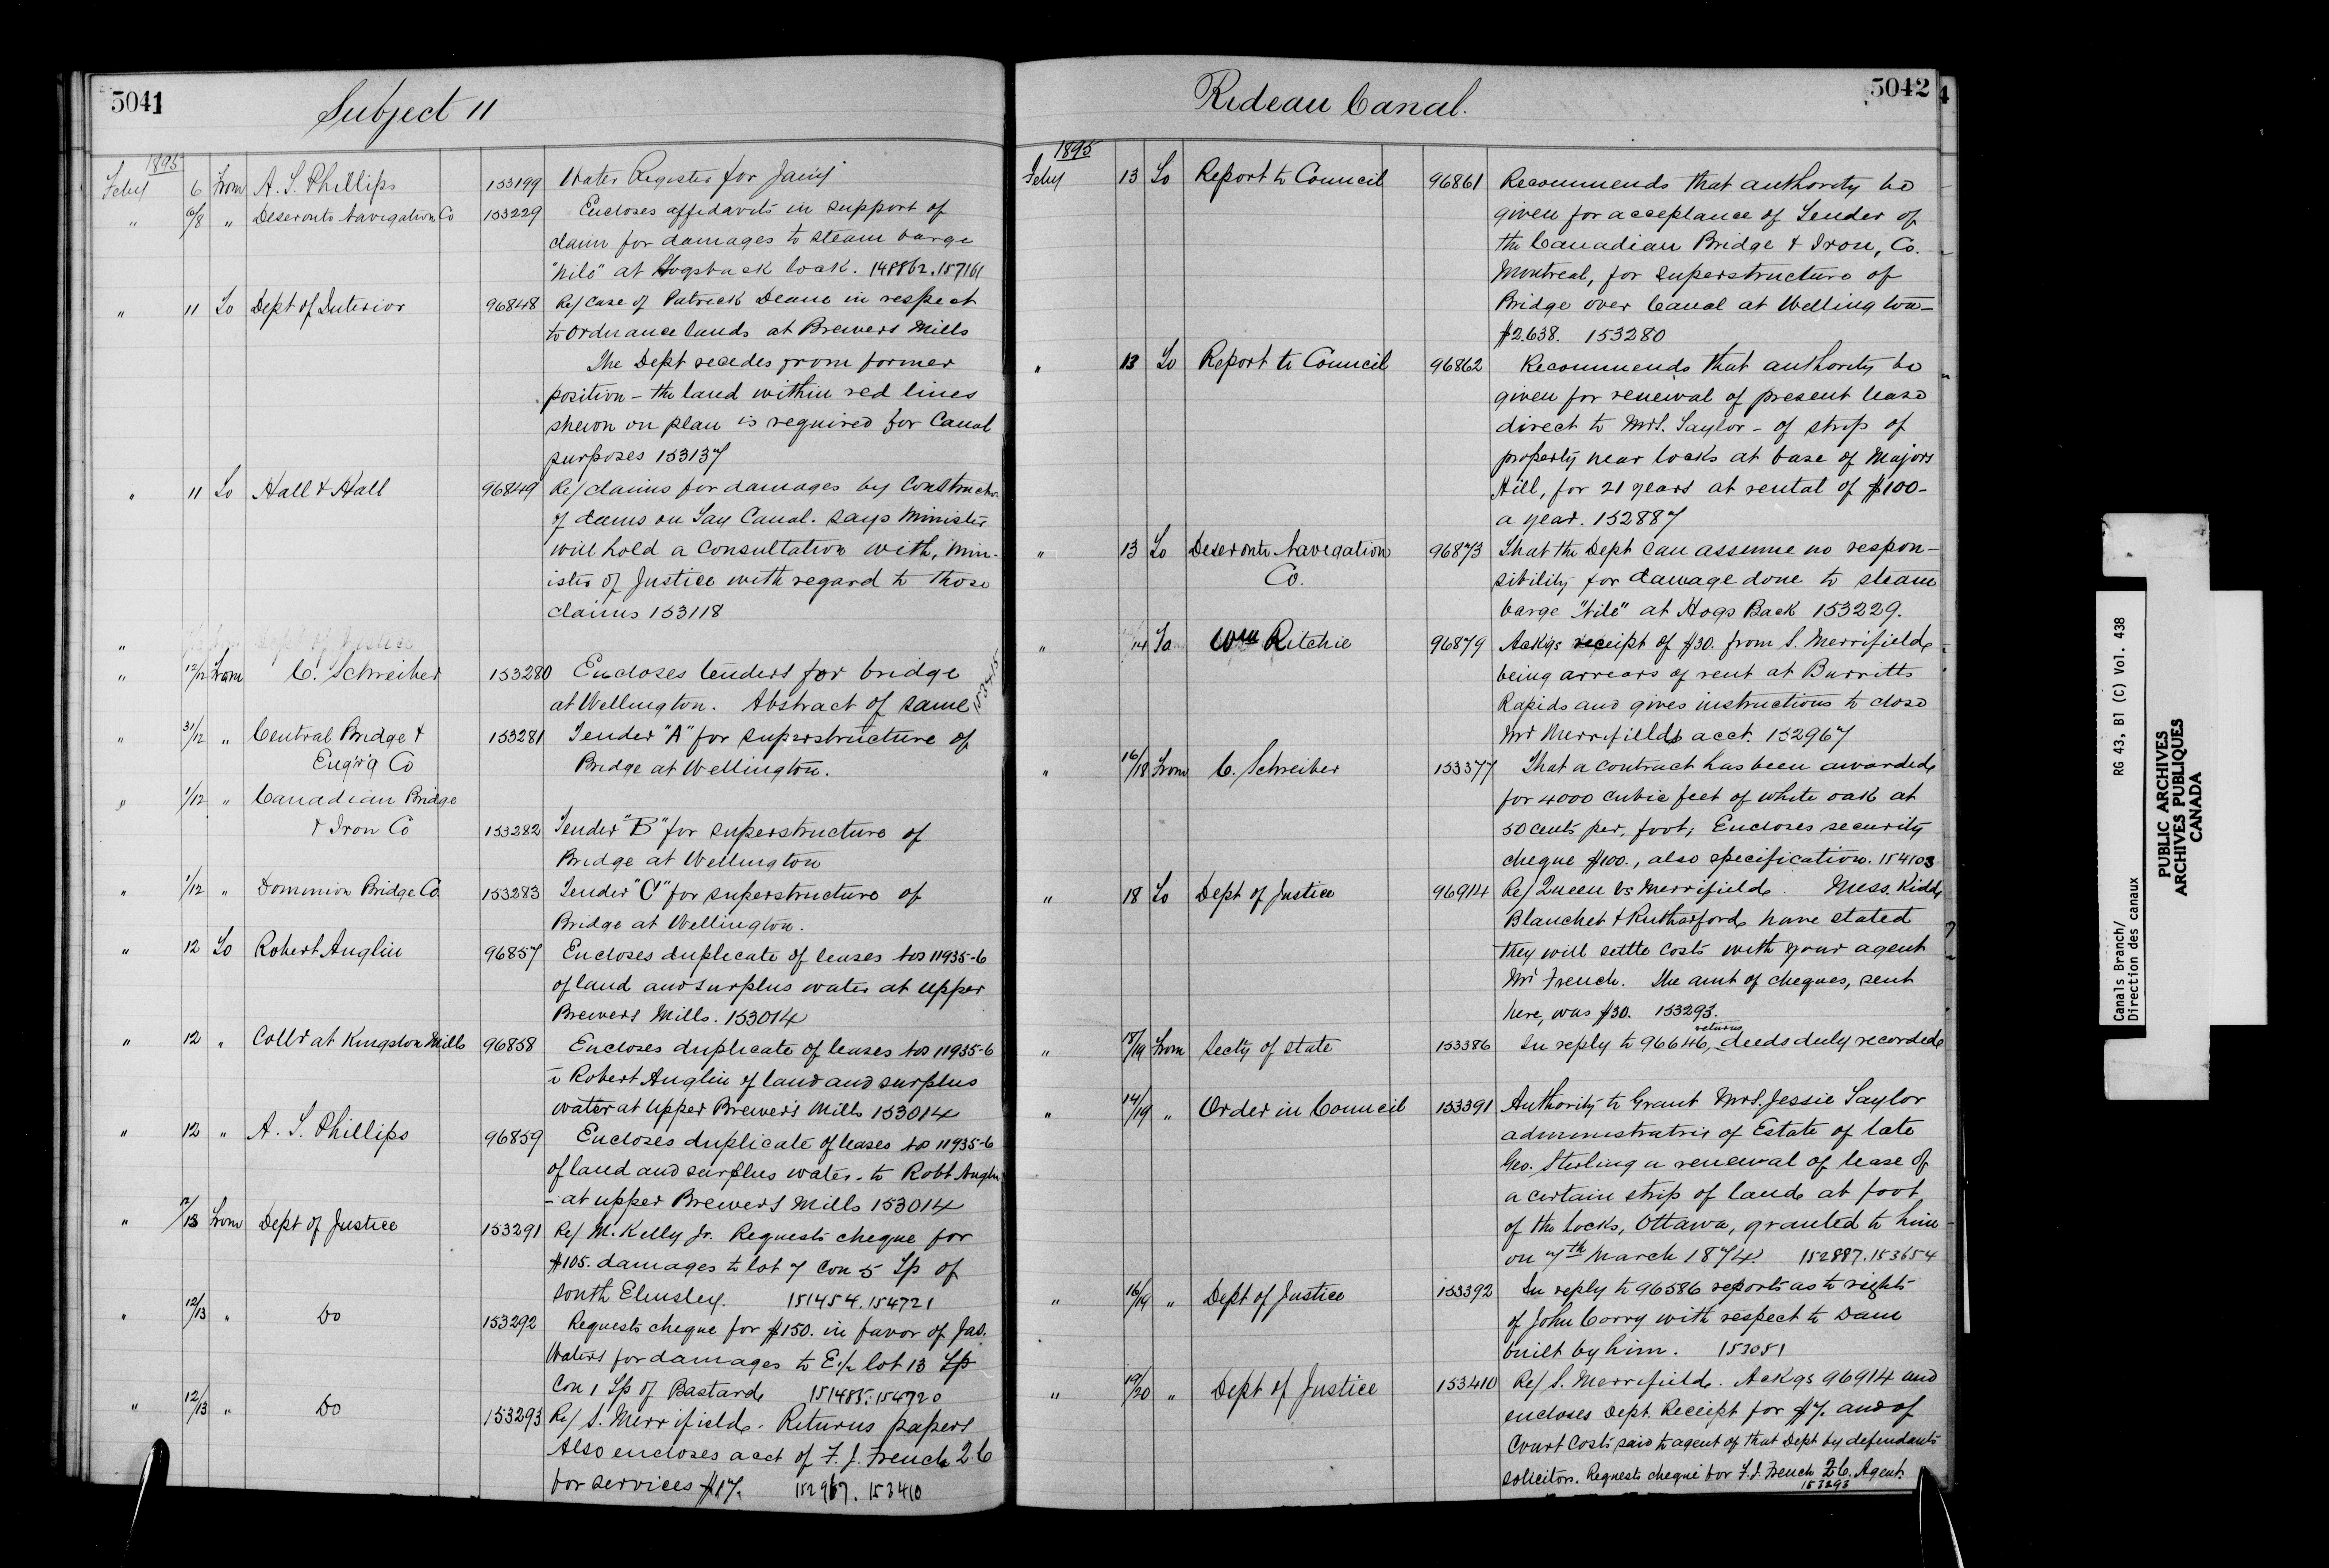 5041
Subject 11
1895
Feby 6 From A. T. Phillips 153199 Water Register for Jany
" 6/8 " Deseronto Navigation Co 153229 Encloses affidavits in support of
claim for damages to steam barge
"Nile" at Hogsback lock. 148862. 157161
" 11 To Dept of Interior 96848 Re/ Case of Patrick Deane in respect
to Ordnance lands at Brewers Mills
The Dept recedes from former
position - the land within red lines
shewn on plan is required for Canal
purposes 153137
" 11 To Hall & Hall 96849 Re/ claims for damages by Construction
of dams on Tay Canal. says Minister
will hold a Consultation with, Min-
ister of Justice with regard to those
claims 153118
" Dept of Justice
" 12/12 From C. Schreiber 153280 Encloses tenders for bridge
at Wellington. Abstract of same 153415
" 31/12 " Central Bridge & 153281 Tender "A" for superstructure of
Eng'r'g Co Bridge at Wellington.
" 1/12 " Canadian Bridge
& Iron Co 153282 Tender "B" for superstructure of
Bridge at Wellington
" 1/12 " Dominion Bridge Co. 153283 Tender "C" for superstructure of
Bridge at Wellington.
" 12 To Robert Anglin 96857 Encloses duplicate of leases Nos 11935-6
of land and surplus water at Upper
Brewers Mills. 153014
" 12 " Collr at Kingston Mills 96858 Encloses duplicate of leases Nos 11935-6
to Robert Anglin of land and surplus
water at Upper Brewer's Mills 153014
" 12 " A. T. Phillips 96859 Encloses duplicate of leases Nos 11935-6
of land and surplus water - to Robt Anglin
- at upper Brewers Mills 153014
" 12/13 From Dept of Justice 153291 Re/ M. Kelly Jr. Requests cheque for
$105. damages to lot 7 Con 5 Tp of
South Elmsley. 151454. 154721
" 12/13 " Do 153292 Requests cheque for $150. in favor of Jas.
Waters for damages to E.½ lot 13 Tp
Con 1 Tp of Bastard 151485. 154720
" 12/13 " Do 153293 Re/ S. Merrifield. Returns papers
Also encloses acct of F. J. French Q.C
for services $17. 152967. 153410
Rideau Canal.
5042
4
1895
Feby 13 To Report to Council 96861 Recommends that authority be
given for acceptance of Tender of
the Canadian Bridge & Iron, Co.
Montreal, for superstructure of
Bridge over Canal at Wellington -
$2.638. 153280
" 13 To Report to Council 96862 Recommends that authority be
given for renewal of present lease
direct to Mrs. Taylor - of strip of
property near locks at base of Majors
Hill, for 21 years at rental of $100-
a year. 152887
" 13 To Deseronto Navigation 96873 That the Dept can assume no respon-
Co. sibility for damage done to steam
barge "Nile" at Hogs Back 153229.
" 14 To Wm Ritchie 96879 Ackgs receipt of $30. from S. Merrifield
being arrears of rent at Burritts
Rapids and gives instructions to close
Mr Merrifields acct. 152967
" 16/18 From C. Schreiber 153377 That a contract has been awarded
for 4000 cubic feet of white oak at
50 cents per, foot; Encloses security
cheque $100., also specification. 154103
" 18 To Dept of Justice 96914 Re/ Queen vs Merrifield. Mess. Kidd
Blanchet & Rutherford have stated
they will settle costs with your agent
Mr French. The amt of cheques, sent
here, was $30. 153293.
" 18/19 From Secty of State 153386 In reply to 96646, returns deeds duly recorded
" 14/19 " Order in Council 153391 Authority to Grant Mrs. Jessie Taylor
administratrix of Estate of late
Geo. Sterling a renewal of lease of
a certain strip of land at foot
of the locks, Ottawa, granted to him
on 7th March 1874. 152887. 153654
" 16/19 " Dept of Justice 153392 In reply to 96586 reports as to right
of John Corry with respect to Dam
built by him. 153051
" 19/20 " Dept of Justice 153410 Re/ S. Merrifield. Ackgs 96914 and
encloses Dept. Receipt for $7. and of
Court Costs paid to agent of that Dept by defendants
solicitors. Requests cheque for F. J. French Q.C. Agent.
153293
Canals Branch/
Direction des canaux
RG 43, B1 (C) Vol. 438
PUBLIC ARCHIVES
ARCHIVES PUBLIQUES
CANADA